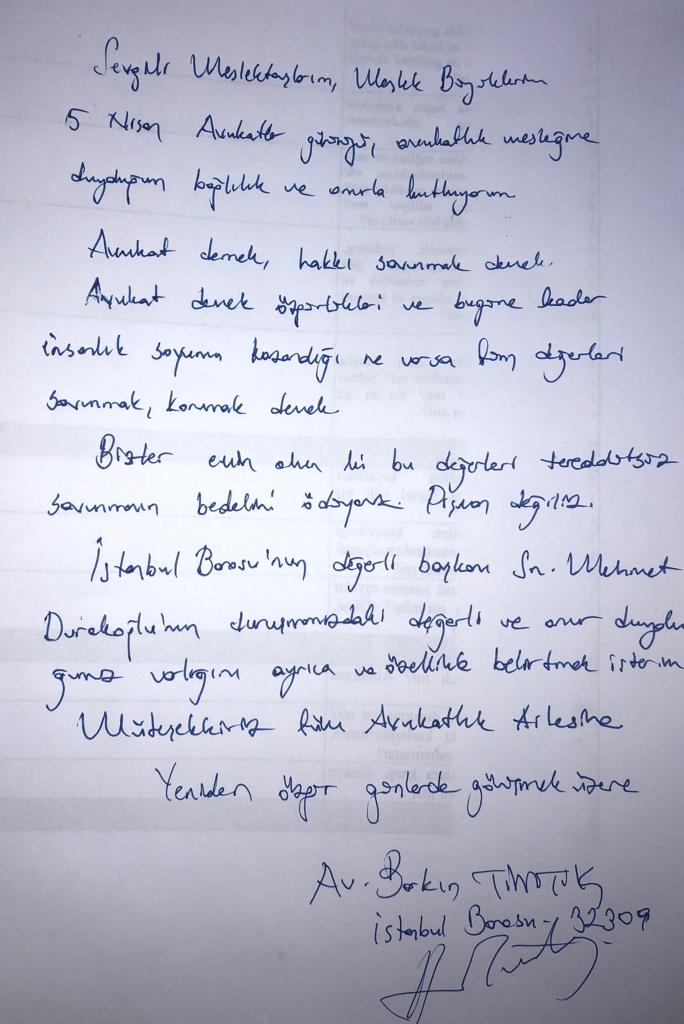 Sevgili Meslektaşlarım, Meslek Büyüklerim
5 Nisan Avukatlar gününüzü, avukatlık mesleğine
duyduğum bağlılık ve onurla kutluyorum
Avukat demek, hakkı savunmak demek.
Avukat demek özgürlükleri ve bugüne kadar
insanlık soyunun kazandığı ne varsa tüm değerleri
savunmak, korumak demek
Bizler emin olun ki bu değerleri tereddütsüz
savunmanın bedelini ödüyoruz. Pişman değiliz.
İstanbul Barosu'nun değerli başkanı Sn. Mehmet
Durakoğlu'nun duruşmamızdaki değerli ve onur duydu
ğumuz varlığını ayrıca ve özellikle belirtmek isterim
Müteşekkiriz tüm Avukatlık Ailesine
Yeniden özgür günlerde görüşmek üzere
Av. Barkın TİMTİK
İstanbul Barosu - 32309